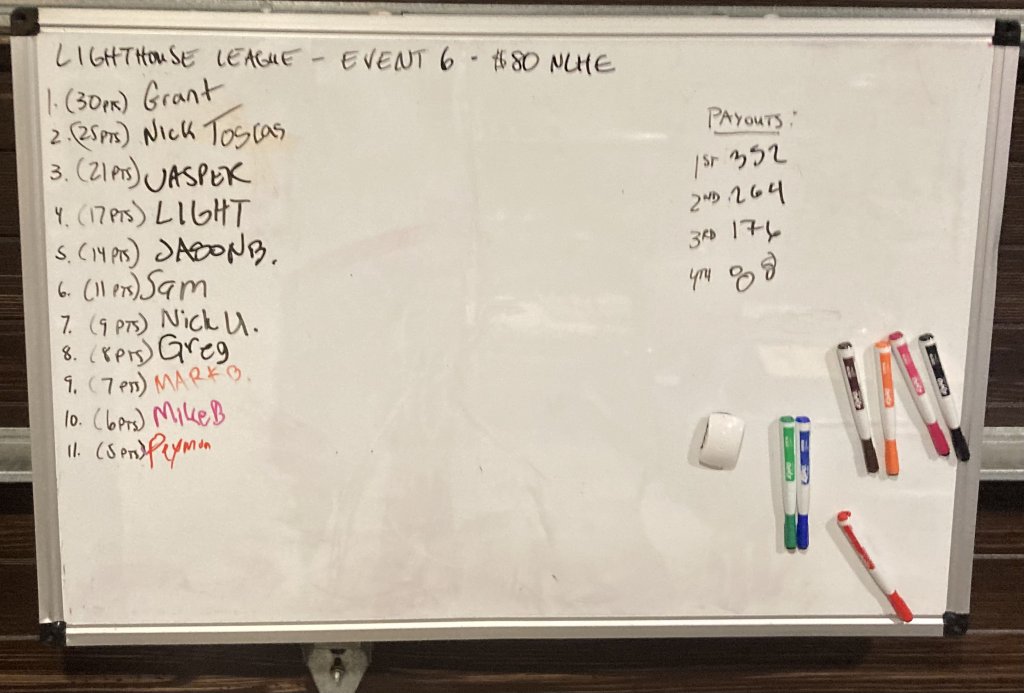 LIGHTHOUSE LEAGUE - EVENT 6 - $80 NLHE
1. (30PTS) Grant
2. (25PTS) NICK TOSCAS
3. (21PTS) JASPER
4. (17PTS) LIGHT
5. (14PTS) JASON B.
6. (11PTS) Sam
7. (9PTS) Nick U.
8. (8PTS) Greg
9. (7PTS) MARK B.
10. (6PTS) Mike B
11. (5PTS) Peyman
PAYOUTS:
1ST 352
2ND 264
3RD 176
4TH 88